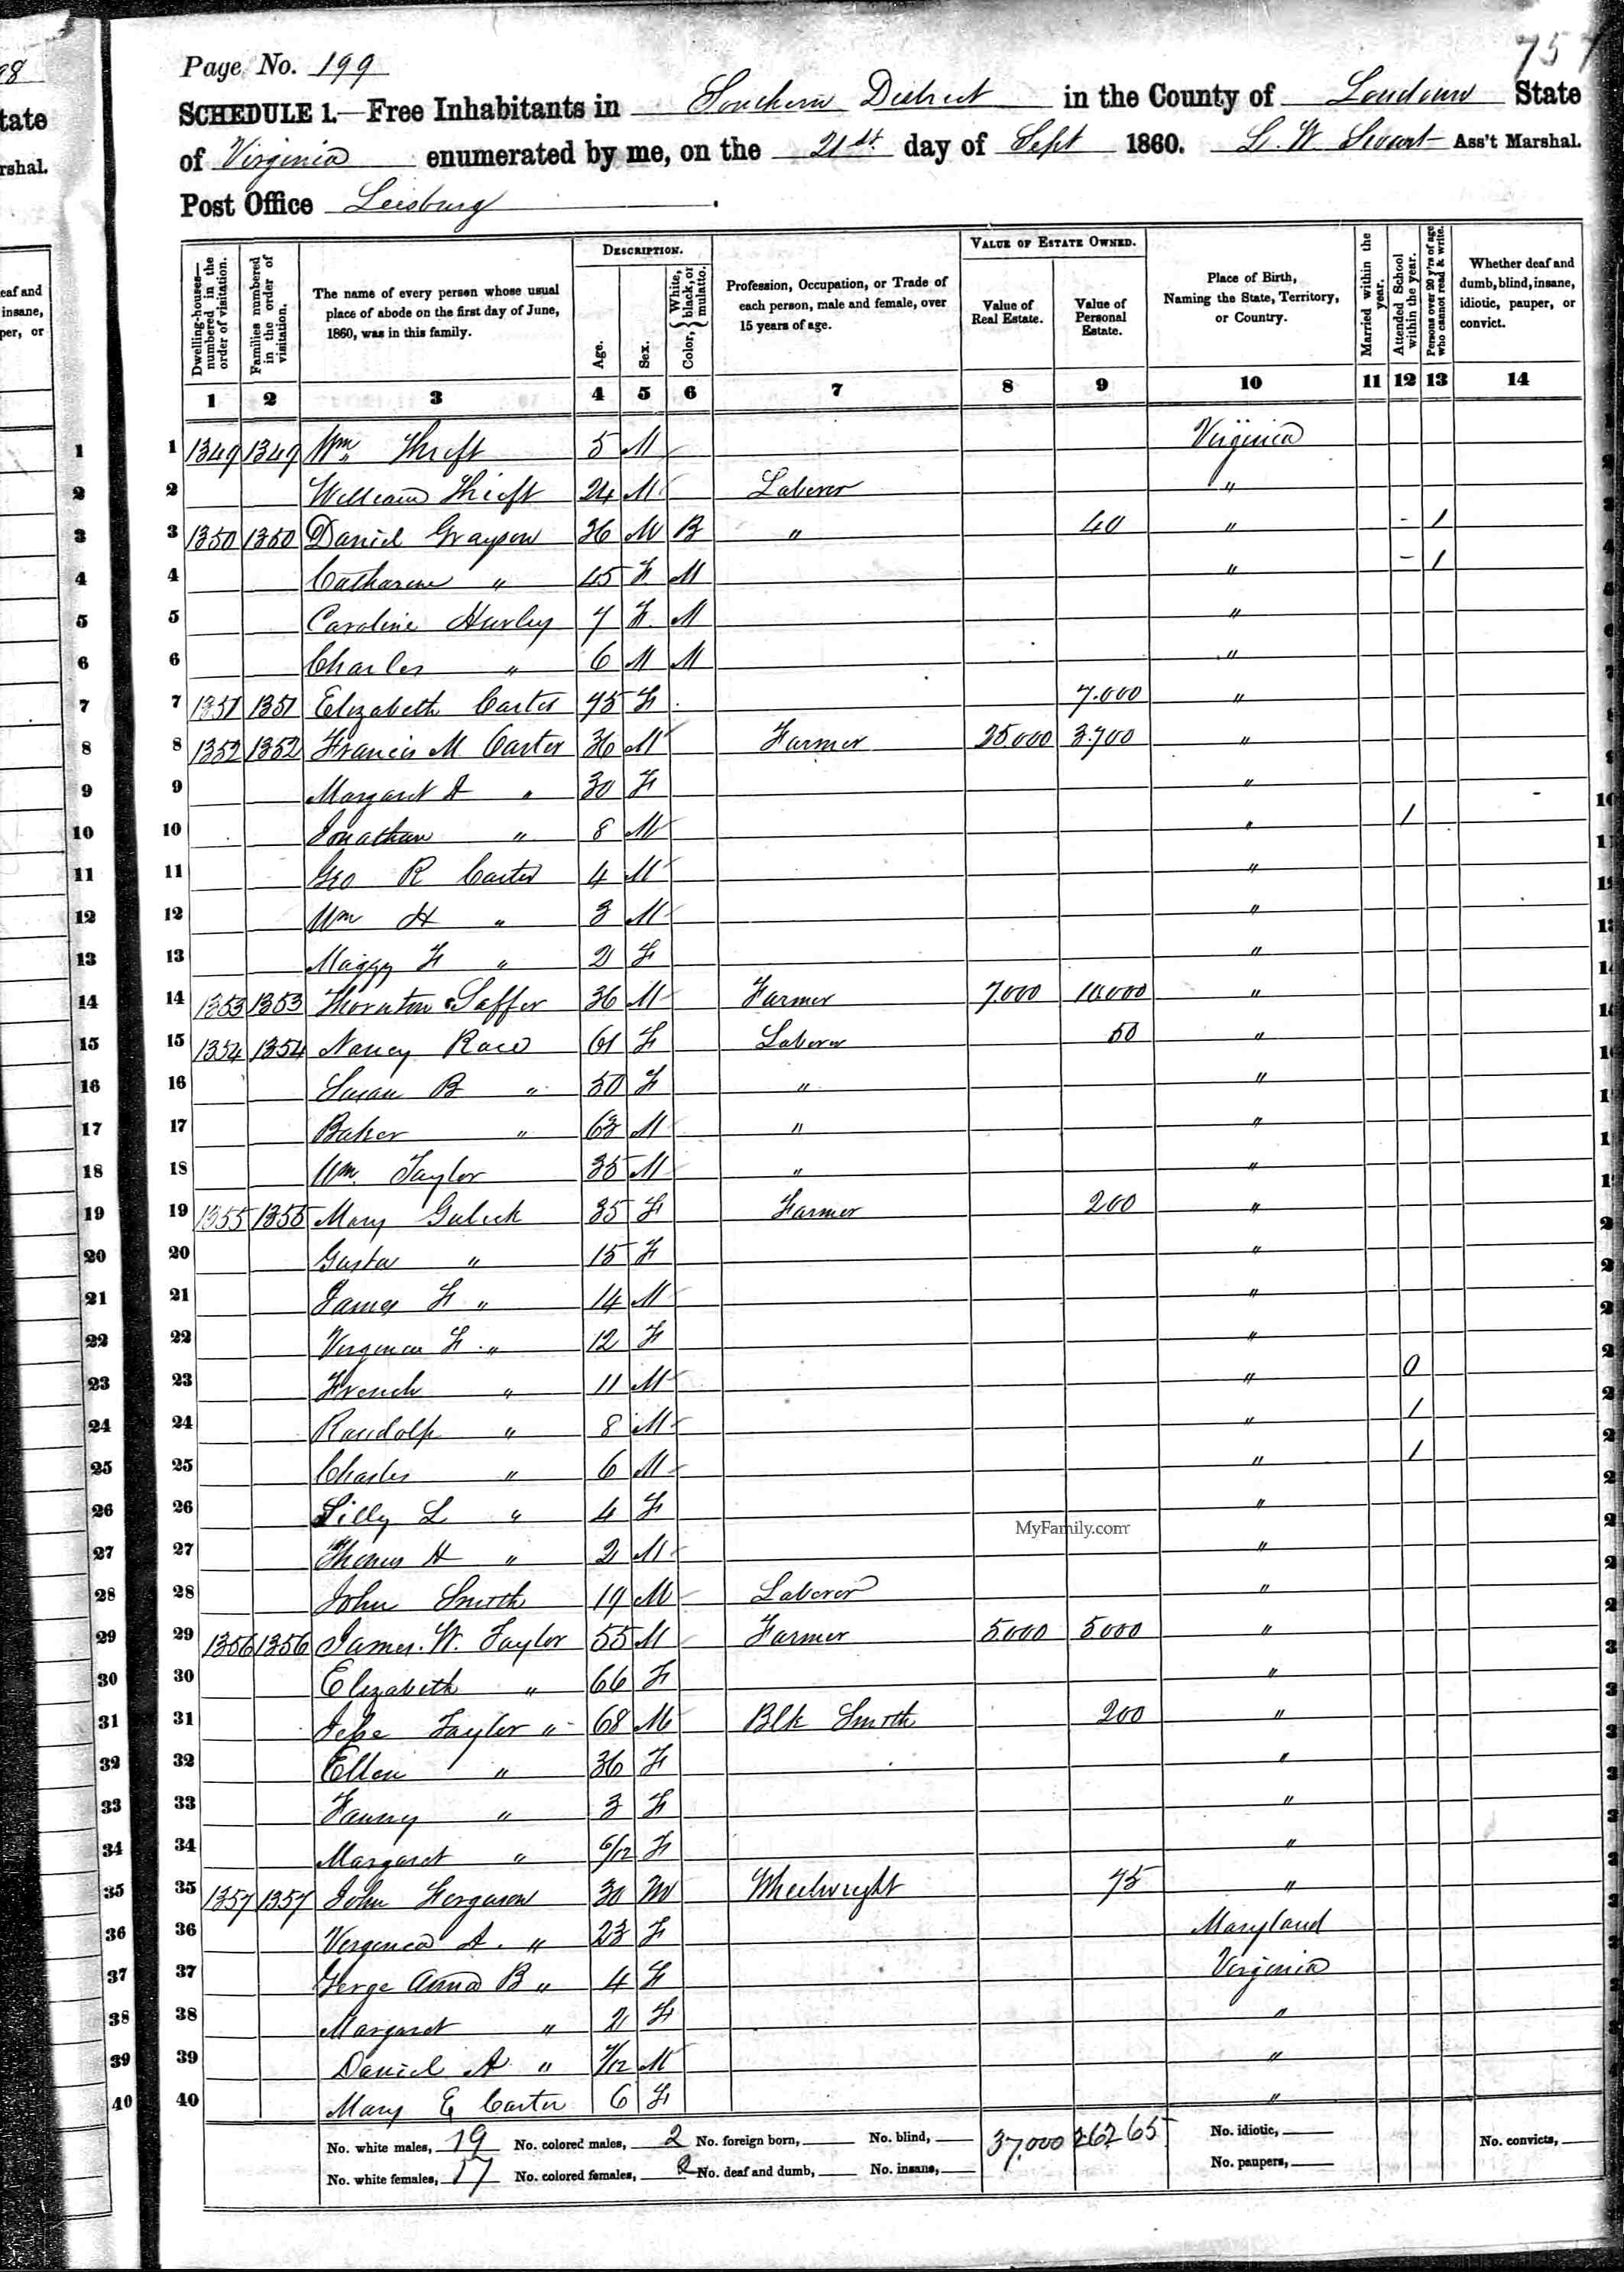 98
tate
rshal.
eaf and
insane,
per, or
757
Page No. 199
SCHEDULE 1.—Free Inhabitants in Southern District in the County of Loudoun State
of Virginia enumerated by me, on the 21st day of Sept 1860. Ass't Marshal.
Post Office Leesburg
Dwelling-houses—numbered in the order of visitation.
Families numbered in the order of visitation.
The name of every person whose usual place of abode on the first day of June, 1860, was in this family.
DESCRIPTION.
Age.
Sex.
Color, { White, black, or mulatto.
Profession, Occupation, or Trade of each person, male and female, over 15 years of age.
VALUE OF ESTATE OWNED.
Value of Real Estate.
Value of Personal Estate.
Place of Birth, Naming the State, Territory, or Country.
Married within the year.
Attended School within the year.
Persons over 20 y'rs of age who cannot read & write.
Whether deaf and dumb, blind, insane, idiotic, pauper, or convict.
1 2 3 4 5 6 7 8 9 10 11 12 13 14
1 1349 1349 Wm Thrift 5 M Virginia
2 William Thrift 24 M Laborer "
3 1350 1350 Daniel Grayson 36 M B " 40 " - 1
4 Catharine " 45 F M " - 1
5 Caroline Hurley 7 F M "
6 Charles " 6 M M "
7 1351 1351 Elizabeth Carter 75 F 7.000 "
8 1352 1352 Francis M Carter 36 M Farmer 25000 3.700 "
9 Margaret A " 30 F "
10 Jonathan " 8 M " 1
11 Geo R Carter 4 M "
12 Wm H " 3 M "
13 Maggy F " 2 F "
14 1353 1353 Thornton Saffer 36 M Farmer 7.000 10.000 "
15 1354 1354 Nancy Race 61 F Laborer 50 "
16 Susan B " 50 F " "
17 Baker " 63 M " "
18 Wm. Taylor 35 M " "
19 1355 1355 Mary Gulick 35 F Farmer 200 "
20 " 15 F "
21 James F " 14 M "
22 Virginia F " 12 F "
23 French " 11 M " 0
24 Randolf " 8 M " 1
25 Charles " 6 M " 1
26 Lilly L " 4 F "
27 Thomas H " 2 M "
28 John Smith 19 M Laborer "
29 1356 1356 James. W. Taylor 55 M Farmer 5000 5000 "
30 Elizabeth " 66 F "
31 Jesse Taylor " 68 M Blk Smith 200 "
32 Ellen " 36 F "
33 Fanny " 3 F "
34 Margaret " 6/12 F "
35 1357 1357 John Ferguson 30 M Wheelwright 75 "
36 Virginia A. " 23 F Maryland
37 Gerge Anna B " 4 F Virginia
38 Margaret " 2 F "
39 Daniel A " M "
40 Mary E Carter 6 F "
MyFamily.com
No. white males, 19 No. colored males, 2 No. foreign born, No. blind, 37,000 26265 No. idiotic, No. convicts,
No. white females, 17 No. colored females, 2 No. deaf and dumb, No. insane, No. paupers,